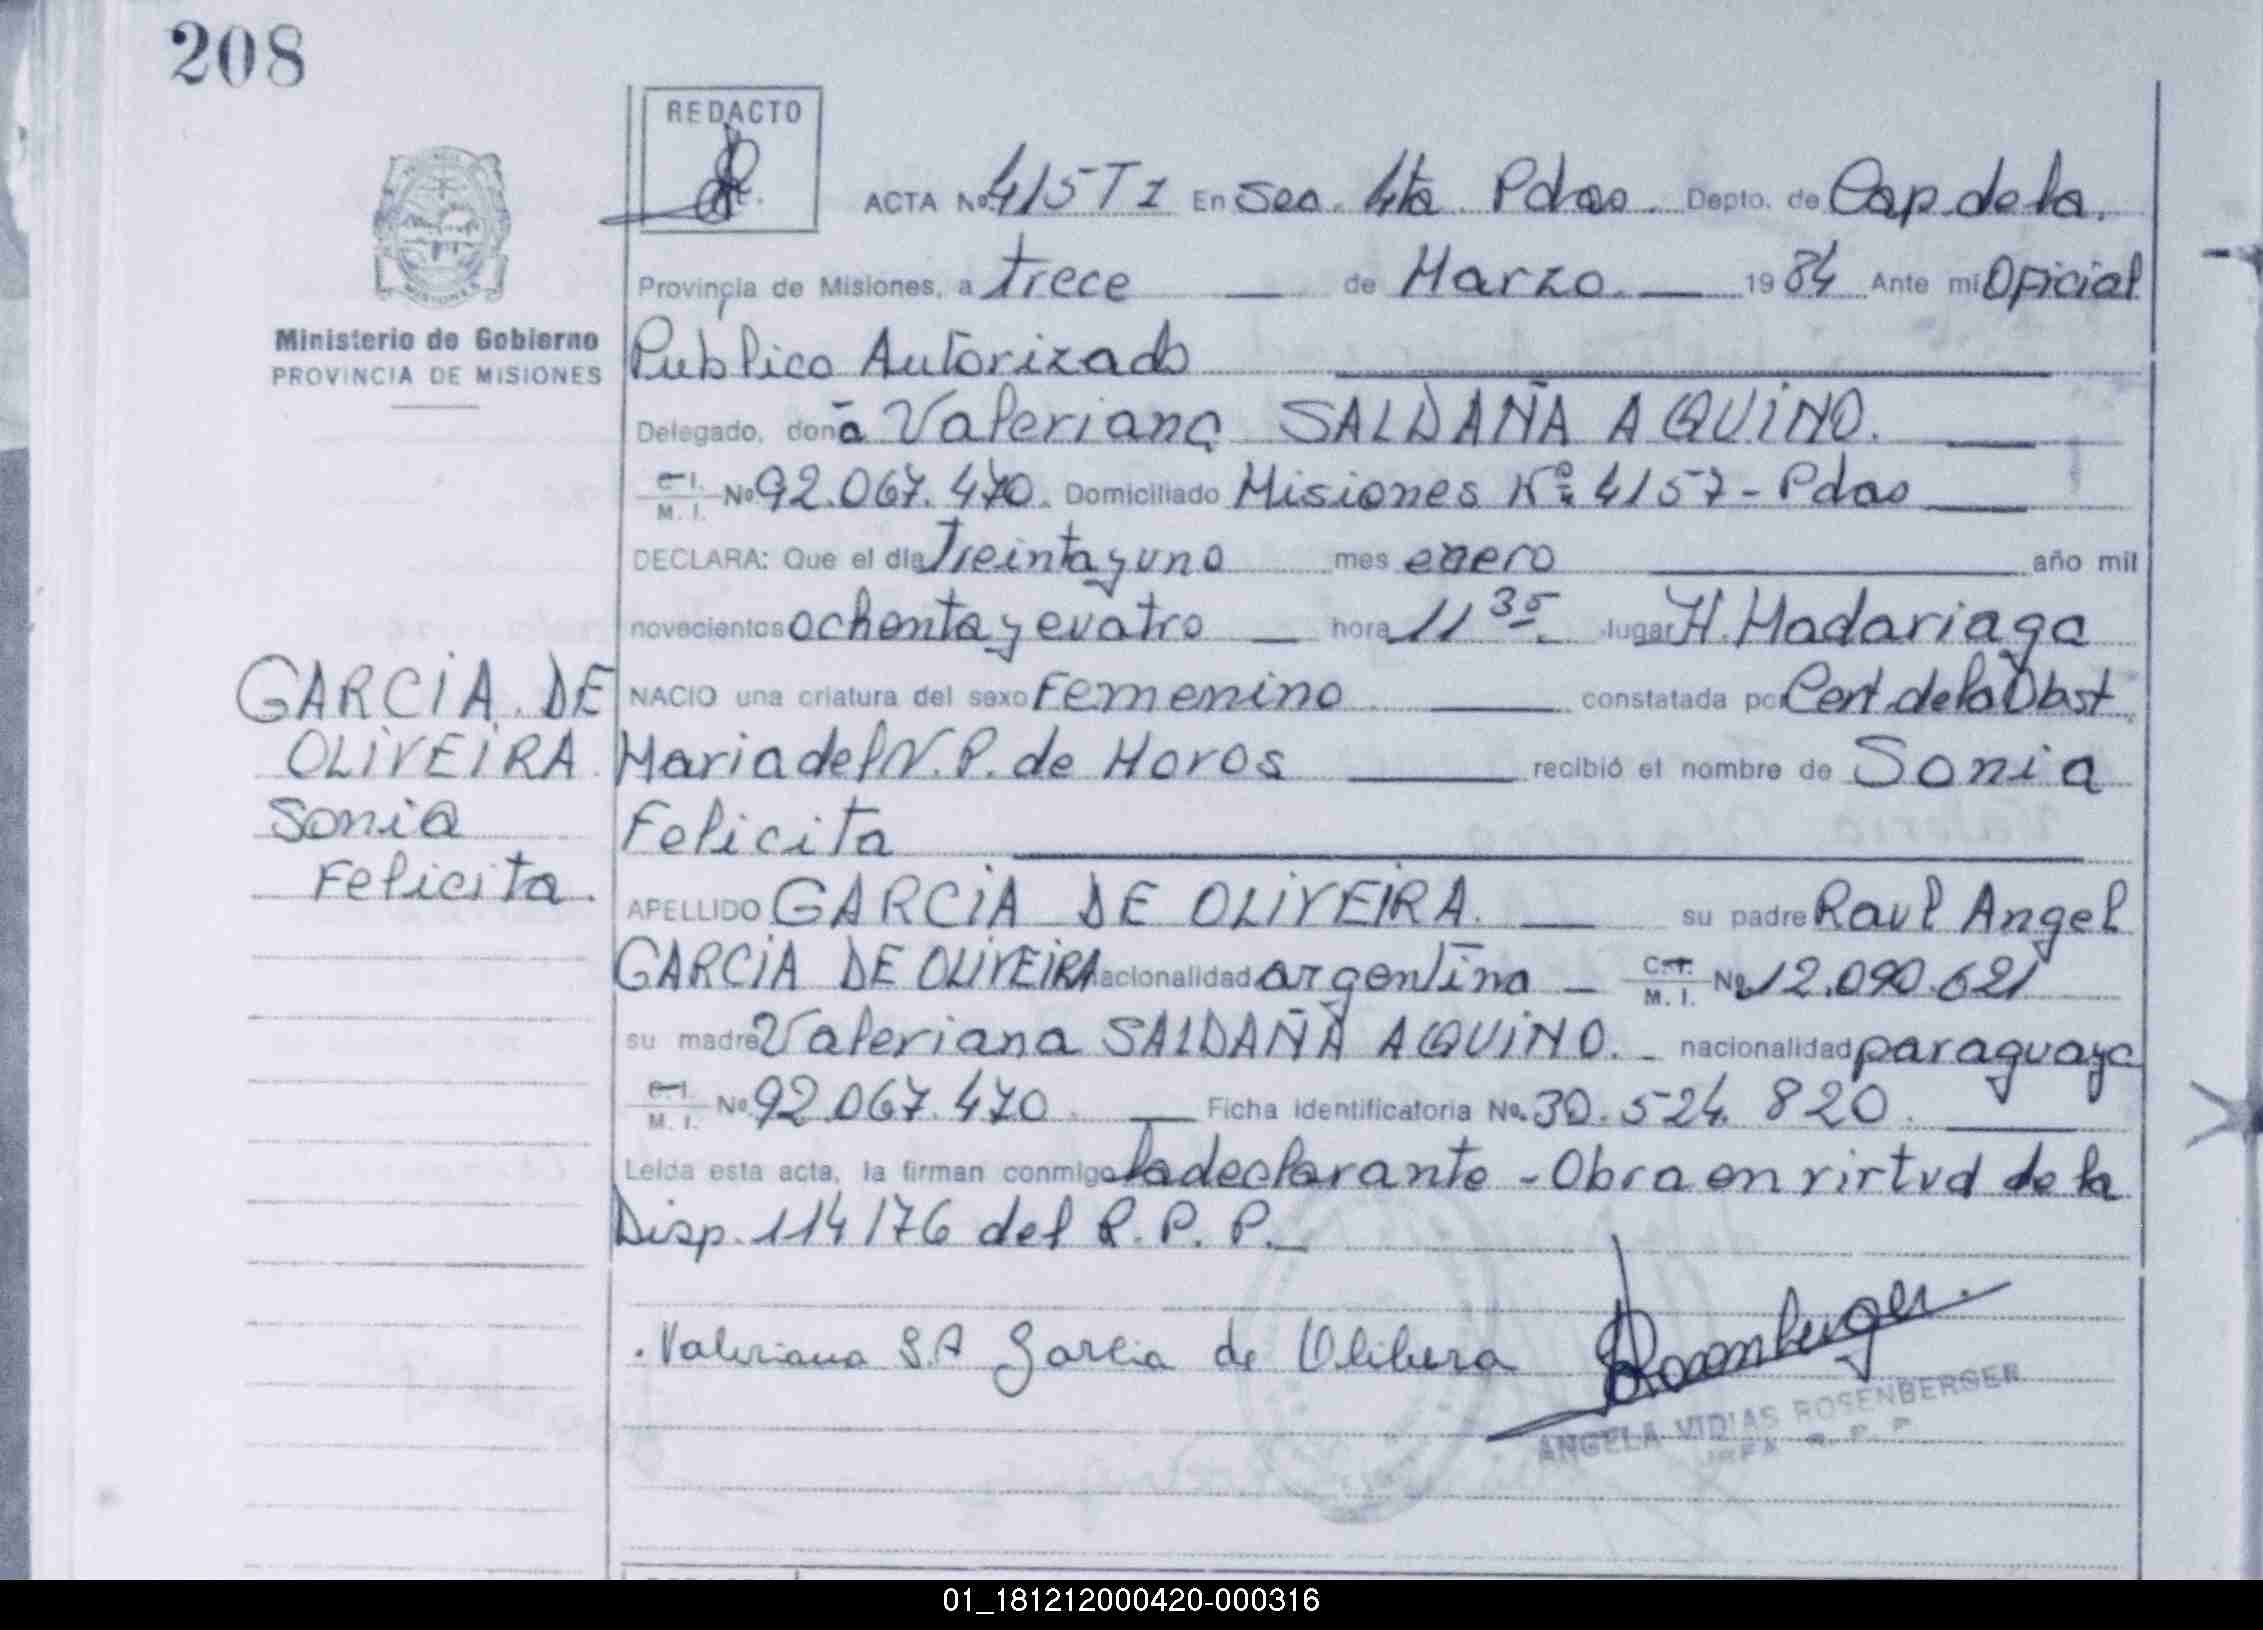 208
REDACTO
ACTA Nº 415 T 1 En Sec. 4ta Pdas. Depto. de Cap. de la
Provincia de Misiones, a trece de Marzo 1984 Ante mi Oficial
Ministerio de Gobierno
PROVINCIA DE MISIONES
Publico Autorizado
Delegado, doña Valeriana SALDAÑA AQUINO.
C.I. M. I. Nº 92.067.470. Domiciliado Misiones Nº 4157 - Pdas
DECLARA: Que el día Treinta y uno mes enero año mil
novecientos ochenta y cuatro hora 11 35. lugar H. Madariaga
GARCIA DE
NACIO una criatura del sexo Femenino constatada por Cert. de la Obst.
OLIVEIRA
Maria del N. P. de Horos recibió el nombre de Sonia
Sonia
Felicita
Felicita.
APELLIDO GARCIA DE OLIVEIRA. su padre Raul Angel
GARCIA DE OLIVEIRA nacionalidad argentina C.I. M. I. Nº 12.090.621
su madre Valeriana SALDAÑA AQUINO. nacionalidad paraguaya
C.I. M. I. Nº 92.067.470 Ficha identificatoria No. 30.524.820.
Leída esta acta, la firman conmigo la declarante - Obra en virtud de la
Disp. 114/76 del R. P. P.
Valeriana S.A Garcia de Olibera Rosenberger
ANGELA VIDIAS ROSENBERGER
JEFA R. P. P.
01_181212000420-000316